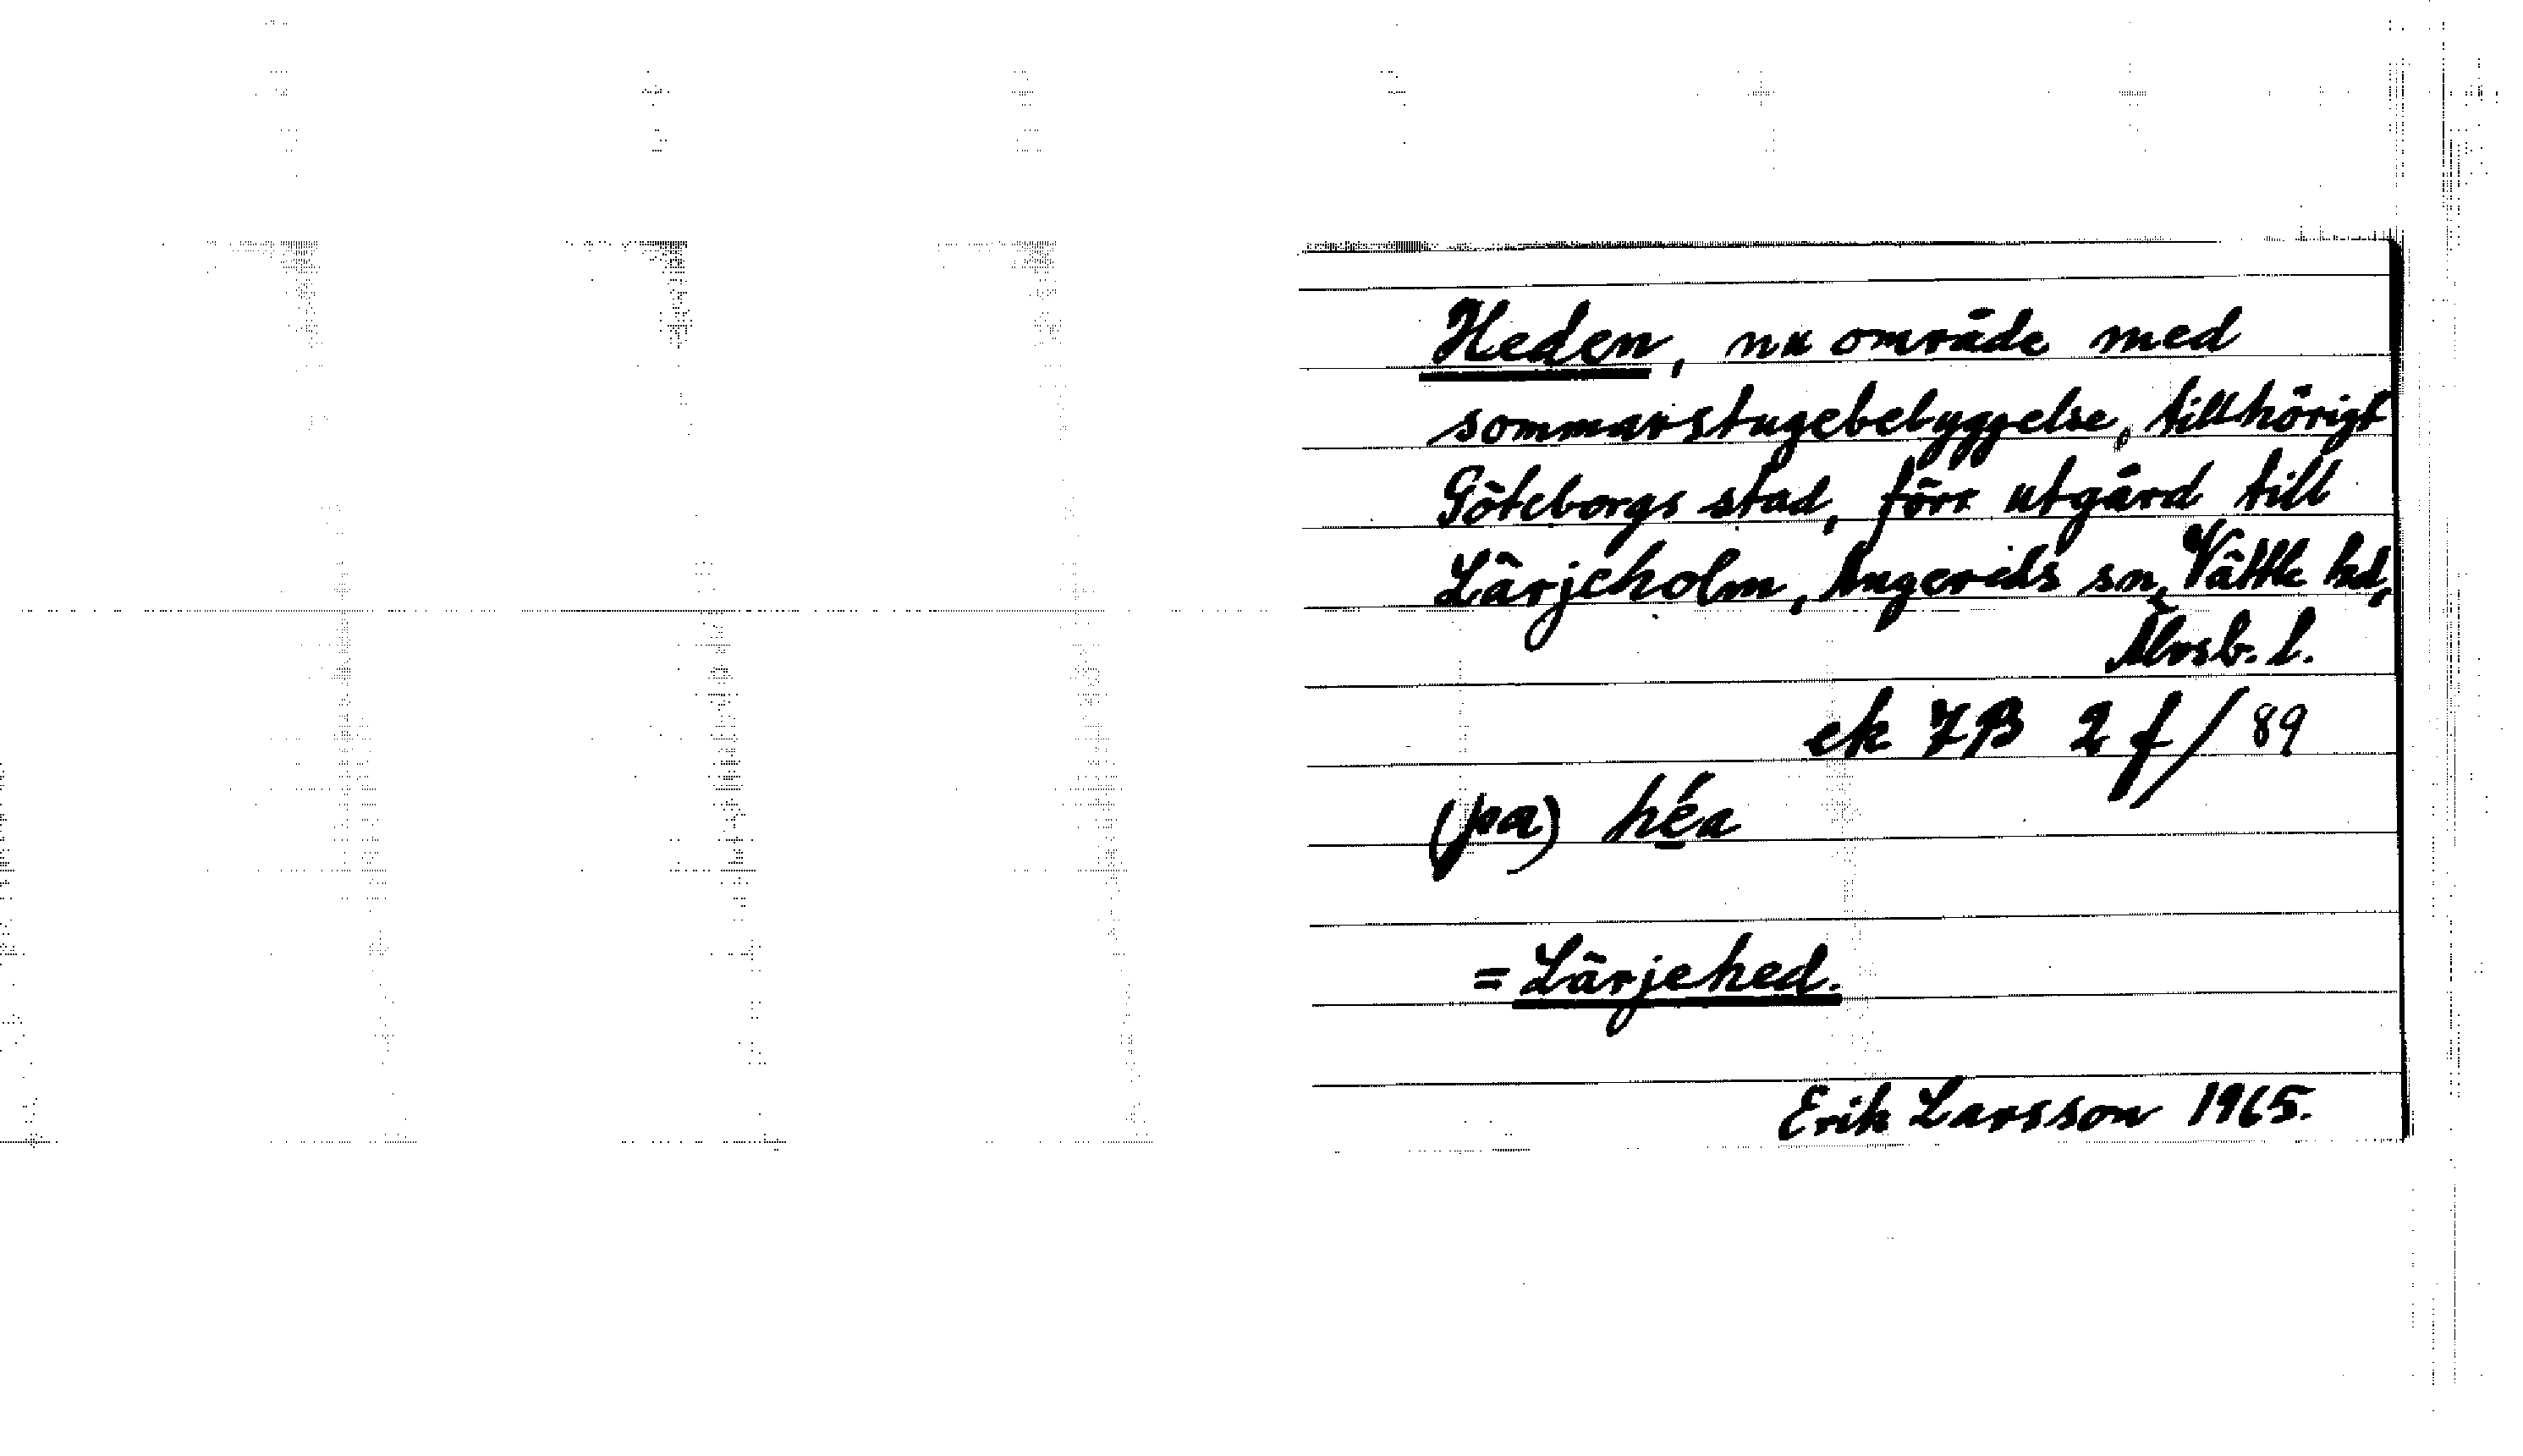 Heden, nu område med
sommarstugebebyggelse, tillhörigt
Göteborgs stad, förr utgård till
Lärjeholm, Angereds sn, Vättle hd,
Älvsb. l.
ek 7B 2 f / 89
(pa) héa
= Lärjehed.
Erik Larsson 1965.